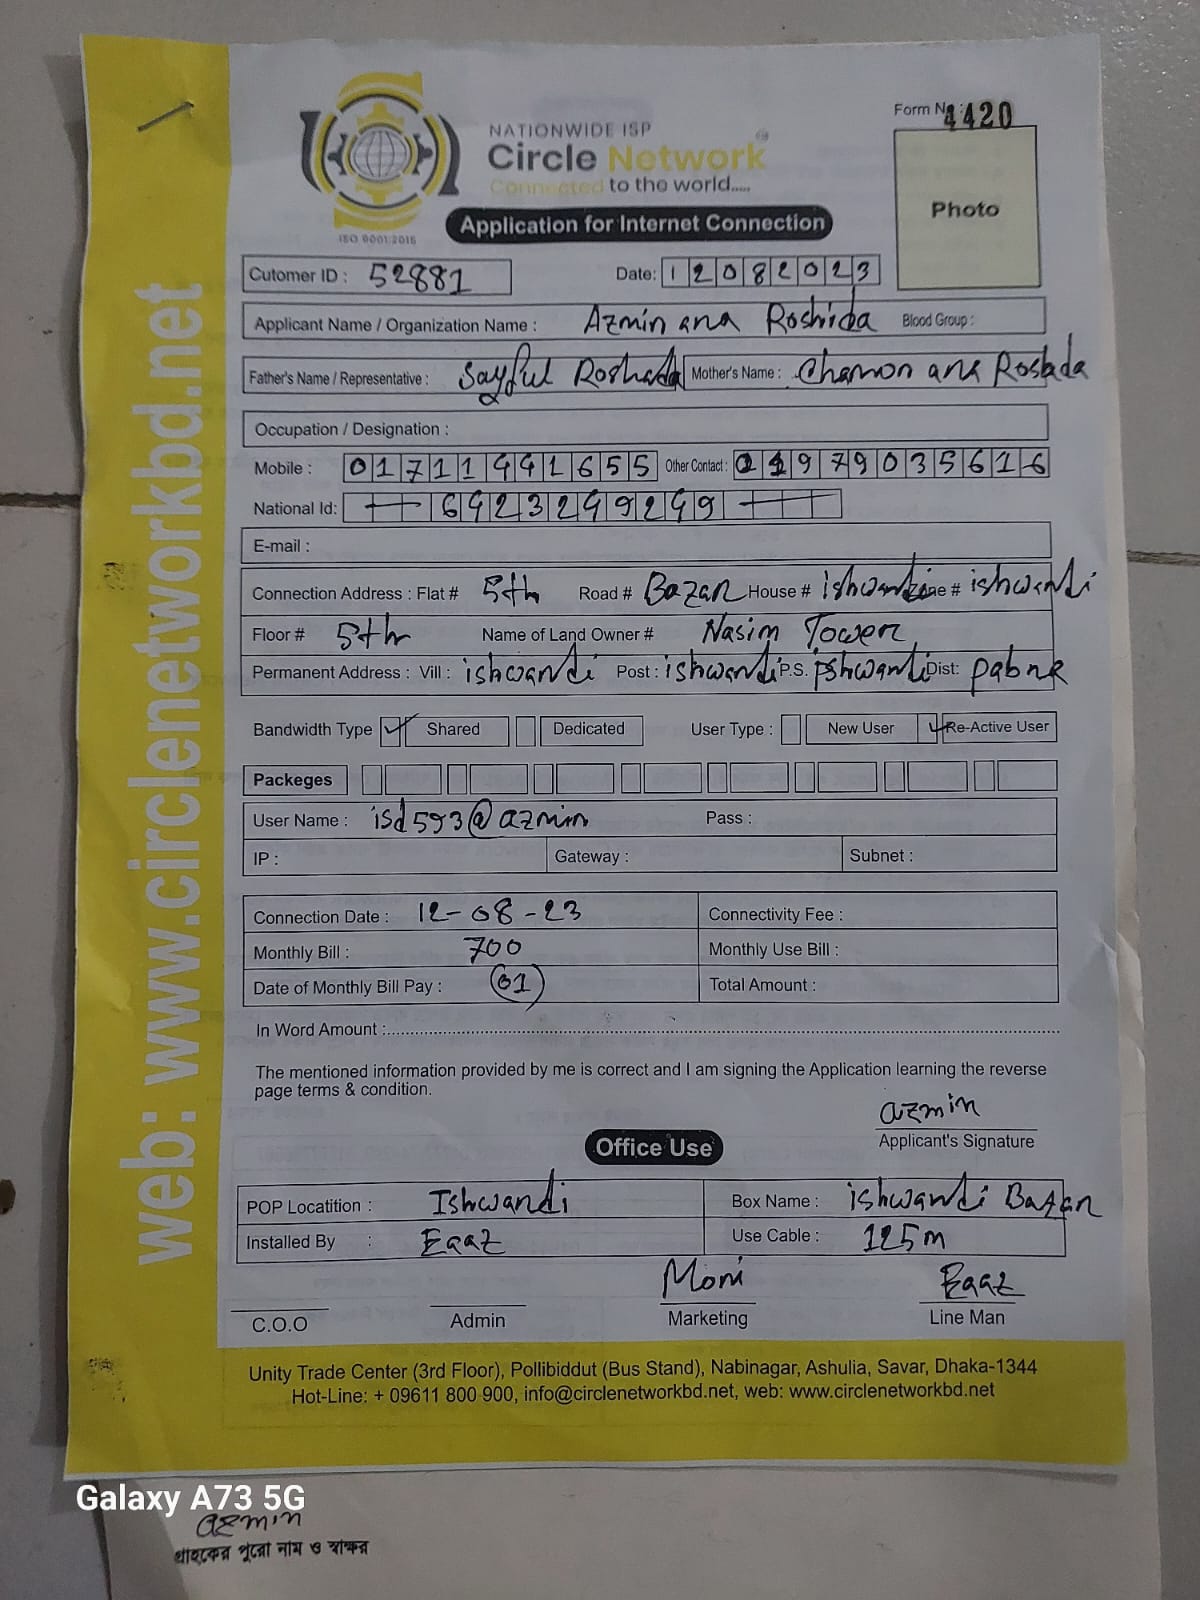 NATIONWIDE ISP
Circle Network
Connected to the world.....
ISO 9001:2015
Form No: 4420
Photo
Application for Internet Connection
Cutomer ID : 52881 Date: 12082023
Applicant Name / Organization Name : Azmin ana Roshida Blood Group :
Father's Name / Representative : Sayful Roshada Mother's Name : Chamon ana Roshada
Occupation / Designation :
Mobile : 01711441655 Other Contact : 01979035616
National Id: 6423249249
E-mail :
Connection Address : Flat # 5th Road # Bazar House # ishwardi Zone # ishwardi
Floor # 5th Name of Land Owner # Nasim Tower
Permanent Address : Vill : ishwardi Post : ishwardi P.S. ishwardi Dist: pabna
Bandwidth Type Shared Dedicated User Type : New User Re-Active User
Packeges
User Name : isd593@azmin Pass :
IP : Gateway : Subnet :
Connection Date : 12-08-23 Connectivity Fee :
Monthly Bill : 700 Monthly Use Bill :
Date of Monthly Bill Pay : 01 Total Amount :
In Word Amount :
The mentioned information provided by me is correct and I am signing the Application learning the reverse
page terms & condition.
azmin
Applicant's Signature
Office Use
POP Locatition : Ishwardi Box Name : ishwardi Bazar
Installed By : Eaaz Use Cable : 125m
Moni Eaaz
C.O.O Admin Marketing Line Man
Unity Trade Center (3rd Floor), Pollibiddut (Bus Stand), Nabinagar, Ashulia, Savar, Dhaka-1344
Hot-Line: + 09611 800 900, info@circlenetworkbd.net, web: www.circlenetworkbd.net
web: www.circlenetworkbd.net
Galaxy A73 5G
azmin
গ্রাহকের পুরো নাম ও স্বাক্ষর